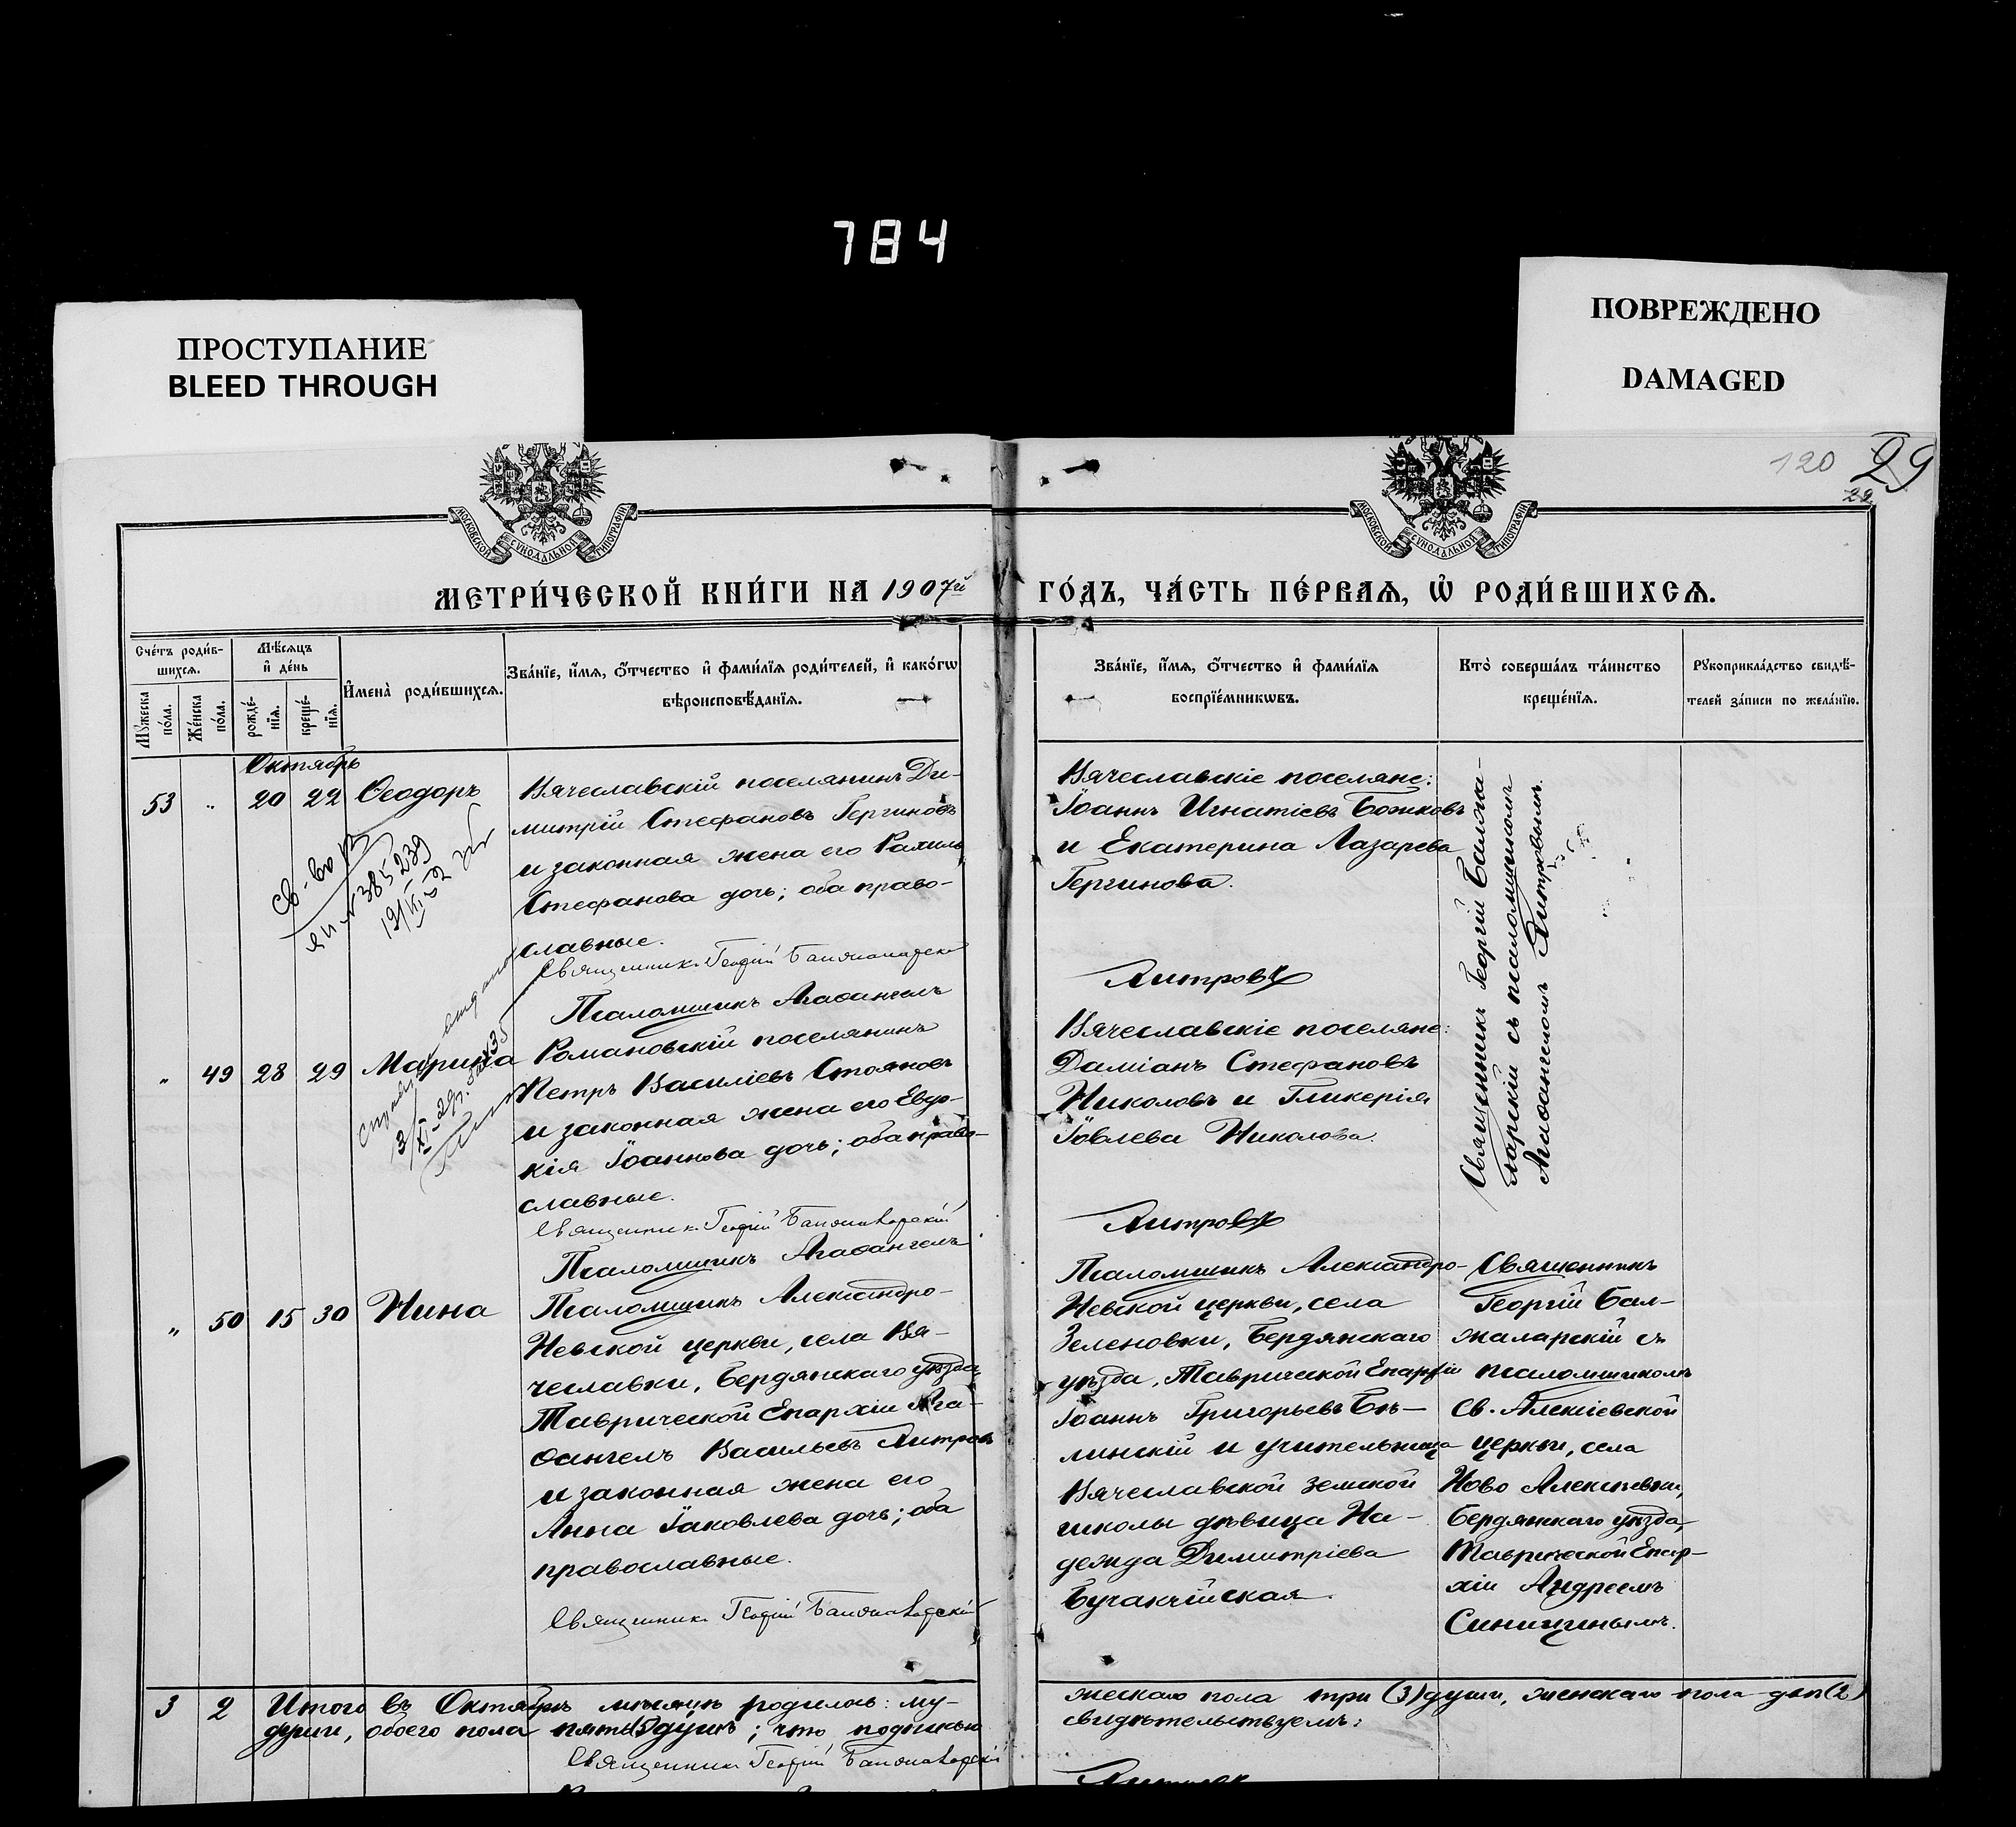 784
ПРОСТУПАНИЕ
BLEED THROUGH
ПОВРЕЖДЕНО
DAMAGED
120 29
22
МОСКОВСКОЙ СУНОДАЛЬНОЙ ТИПОГРАФІИ
МОСКОВСКОЙ СУНОДАЛЬНОЙ ТИПОГРАФІИ
МЕТРИ́ЧЕСКОЙ КНИ́ГИ НА 1907й ГО́ДЪ, ЧА́СТЬ ПЕ́РВАѦ, Ѡ҆ РОДИ́ВШИХСѦ.
Сче́тъ роди́в-
шихсѧ.
Мꙋ́жеска
по́ла.
Же́нска
по́ла.
Мѣ́сѧцъ
и҆ де́нь
рожде́-
нїѧ.
креще́-
нїѧ.
И҆мена̀ роди́вшихсѧ.
Зва́нїе, и҆́мѧ, ѻ҆́тчество и҆ фами́лїѧ роди́телей, и҆ како́гѡ
вѣроисповѣ́данїѧ.
Зва́нїе, и҆́мѧ, ѻ҆́тчество и҆ фами́лїѧ
воспрїе́мникѡвъ.
Кто̀ соверша́лъ та́инство
креще́нїѧ.
Рꙋкоприкла́дство свидѣ́-
телей за́писи по жела́нїю.
Октябрь
53 " 20 22 Ѳеодоръ
Вячеславскій поселянинъ Ди-
митрій Стефановъ Гергиновъ
и законная жена его Рахиль
Стефанова дочь; оба право-
славные.
Священникъ Георгій Балжаларскій
Псаломщикъ Агаѳангелъ
Вячеславскіе поселяне:
Іоаннъ Игнатіевъ Божковъ
и Екатерина Лазарева
Гергинова.
Хитровъ
Св-во
ЯИ № 385239
Священникъ Георгій Балжа-
ларскій съ псаломщикомъ
Агаѳангеломъ Хитровымъ.
" 49 28 29 Марина
Романовскій поселянинъ
Петръ Василіевъ Стояновъ
и законная жена его Евдо-
кія Іоаннова дочь; оба право-
славные.
Священникъ Георгій Балжаларскій
Псаломщикъ Агаѳангелъ
Вячеславскіе поселяне:
Даміанъ Стефановъ
Николовъ и Гликерія
Іовлева Николова.
Хитровъ
" 50 15 30 Нина
Псаломщикъ Александро-
Невской церкви, села Вя-
чеславки, Бердянскаго уѣзда,
Таврической Епархіи Ага-
ѳангелъ Васильевъ Хитровъ
и законная жена его
Анна Іаковлева дочь; оба
православные.
Священникъ Георгій Балжаларскій
Псаломщикъ Александро-
Невской церкви, села
Зеленовки, Бердянскаго
уѣзда, Таврической Епархіи
Іоаннъ Григорьевъ Бѣ-
линскій и учительница
Вячеславской земской
школы дѣвица На-
дежда Димитріева
Бучакчійская.
Священникъ
Георгій Бал-
жаларскій съ
псаломщикомъ
Св. Алексіевской
церкви, села
Ново Алексѣевки,
Бердянскаго уѣзда,
Таврической Епар-
хіи Андреемъ
Синицинымъ.
3 2 Итого въ Октябрѣ мѣсяцѣ родилось: му-
жескаго пола три (3) души, женскаго пола двѣ (2)
души, обоего пола пять (5) душъ; что подписью
свидѣтельствуемъ:
Священникъ Георгій Балжаларскій